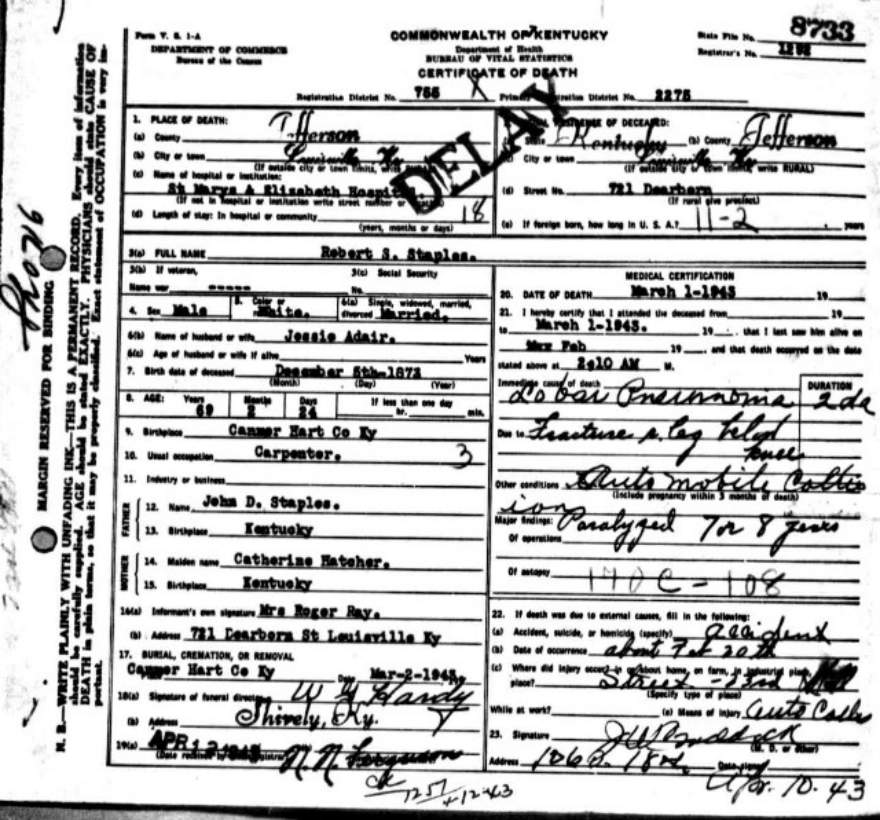 8733
Form V. S. 1-A
DEPARTMENT OF COMMERCE
Bureau of the Census
COMMONWEALTH OF KENTUCKY
Department of Health
BUREAU OF VITAL STATISTICS
CERTIFICATE OF DEATH
State File No.
Registrar's No.
Registration District No. 755 X Primary Registration District No. 2275
DELAY
1. PLACE OF DEATH:
(a) County Jefferson
(b) City or town Louisville Ky
(If outside city or town limits, write RURAL)
(c) Name of hospital or institution:
St Marys & Elizabeth Hospital
(If not in hospital or institution write street number or
(d) Length of stay: In hospital or community 18
(years, months or days)
RESIDENCE OF DECEASED:
State Kentucky (b) County Jefferson
City or town Louisville Ky
(If outside city or town limits, write RURAL)
(d) Street No. 721 Dearborn
(If rural give precinct)
(e) If foreign born, how long in U. S. A.? 11-2 years
3(a) FULL NAME Robert S. Staples.
3(b) If veteran,
Name war -----
3(c) Social Security
No.
4. Sex Male 5. Color or race White. 6(a) Single, widowed, married, divorced Married.
6(b) Name of husband or wife Jessie Adair.
6(c) Age of husband or wife if alive Years
7. Birth date of deceased December 5th-1873
(Month) (Day) (Year)
8. AGE: Years Months Days If less than one day
69 2 24 hr. min.
9. Birthplace Canmer Hart Co Ky
10. Usual occupation Carpenter. 3
11. Industry or business
FATHER
12. Name John D. Staples.
13. Birthplace Kentucky
MOTHER
14. Maiden name Catherine Hatcher.
15. Birthplace Kentucky
16(a) Informant's own signature Mrs Roger Ray.
(b) Address 721 Dearborn St Louisville Ky
17. BURIAL, CREMATION, OR REMOVAL
Canmer Hart Co Ky Date Mar-2-1943.
18(a) Signature of funeral director W G Hardy
(b) Address Shively, Ky.
19(a) APR 12 1943 N. N. Ferguson
(Date received by registrar)
4-12-43
MEDICAL CERTIFICATION
20. DATE OF DEATH March 1-1943 19
21. I hereby certify that I attended the deceased from 19
to March 1-1943. 19 , that I last saw him alive on
Feb 19 , and that death occurred on the date
stated above at 2:10 AM M.
Immediate cause of death DURATION
Lobar Pneumonia 2 da
Due to Fracture r leg below
knee
Other conditions Automobile Collis
ion
(Include pregnancy within 3 months of death)
Major findings: Paralyzed 7 or 8 years
Of operations
Of autopsy 170C-108
22. If death was due to external causes, fill in the following:
(a) Accident, suicide, or homicide (specify) accident
(b) Date of occurrence about Feb 20th
(c) Where did injury occur in or about home, on farm, in industrial place,
place? Street - 23rd
(Specify type of place)
While at work? (e) Means of injury Auto Collis
23. Signature
(M. D. or other)
Address Date signed Apr. 10. 43
MARGIN RESERVED FOR BINDING
N. B.—WRITE PLAINLY WITH UNFADING INK—THIS IS A PERMANENT RECORD. Every item of information
should be carefully supplied. AGE should be stated EXACTLY. PHYSICIANS should state CAUSE OF
DEATH in plain terms, so that it may be properly classified. Exact statement of OCCUPATION is very im-
portant.